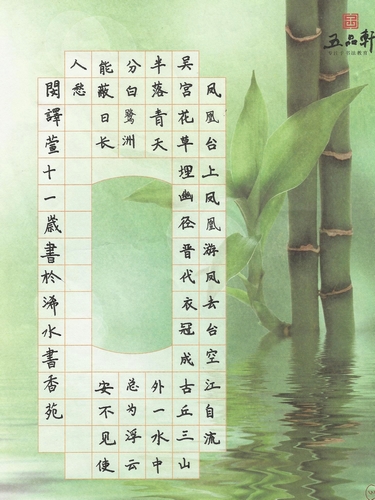 五品軒
凤凰台上凤凰游凤去台空江自流
吴宫花草埋幽径晋代衣冠成古丘三山
半落青天外一水中
分白鷺洲总为浮云
能蔽日长安不见使
人愁
閔譯萱十一歲書於浠水書香苑